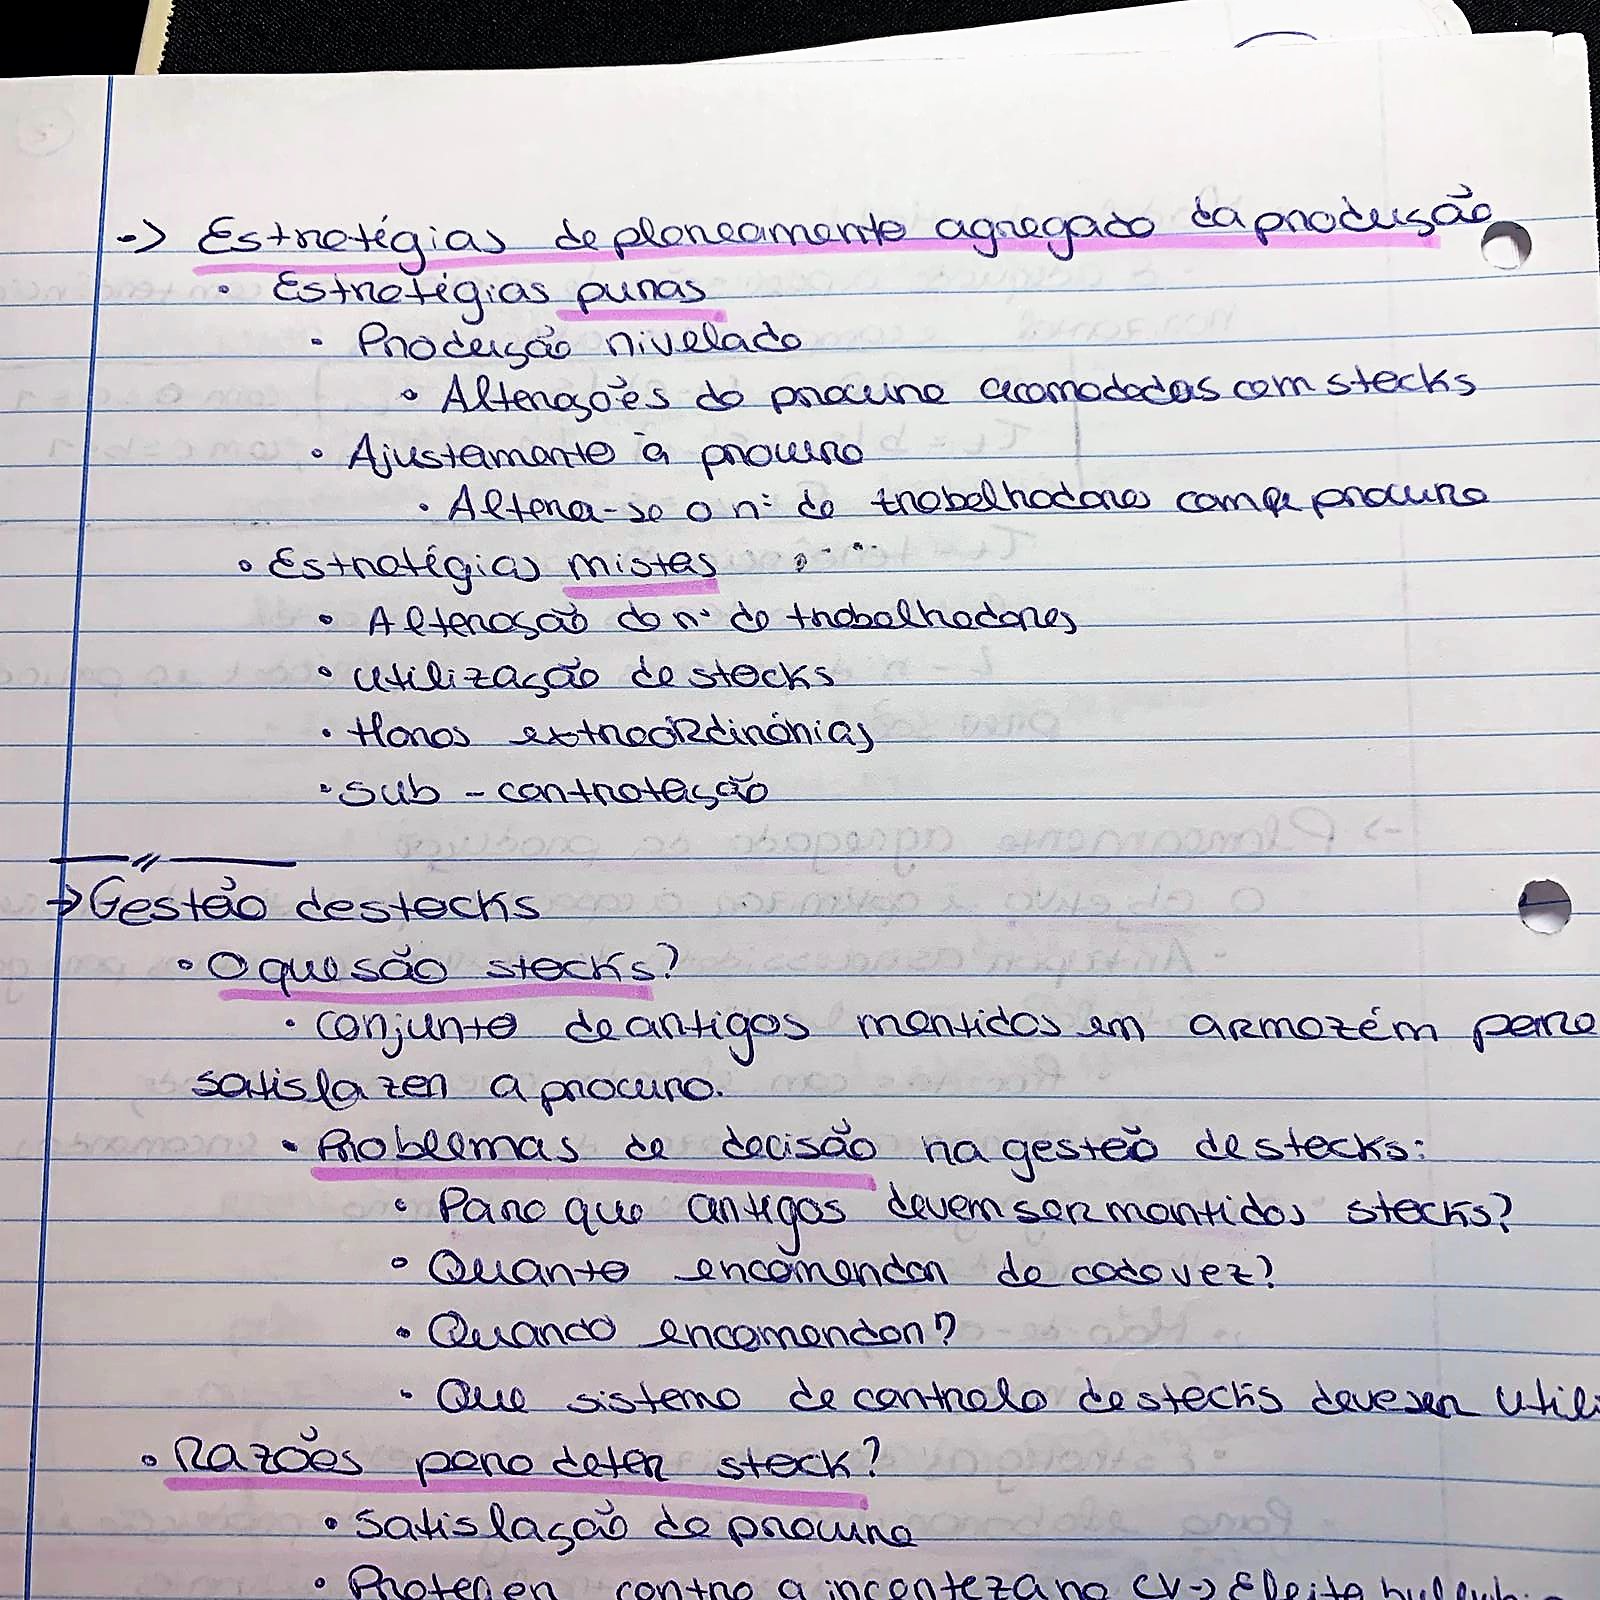 -> Estratégias de planeamento agregado da produção
• Estratégias puras
• Produção nivelada
• Alterações da procura acomodadas com stocks
• Ajustamento à procura
• Altera-se o nº de trabalhadores com a procura
• Estratégias mistas
• Alteração do nº de trabalhadores
• Utilização de stocks
• Horas extraordinárias
• Sub-contratação
-> Gestão de stocks
• O que são stocks?
• Conjunto de artigos mantidos em armazém para
satisfazer a procura.
• Problemas de decisão na gestão de stocks:
• Para que artigos devem ser mantidos stocks?
• Quanto encomendar de cada vez?
• Quando encomendar?
• Que sistema de controlo de stocks deve ser utili
• Razões para deter stock?
• Satisfação da procura
• Proteger contra a incerteza na CV -> Efeito